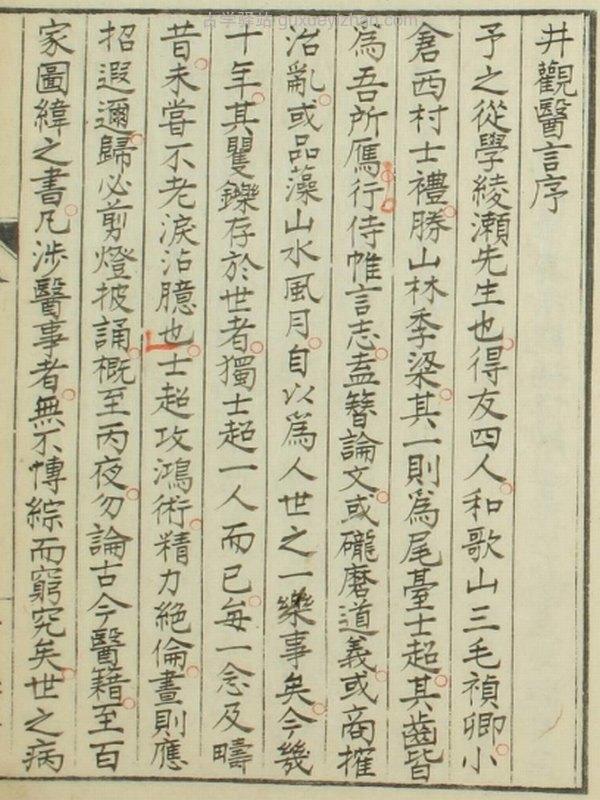 古学驿站 guxueyizhan.com
井觀醫言序
予之從學綾瀬先生也得友四人和歌山三毛禎卿小
倉西村士禮勝山林季梁其一則爲尾臺士超其齒皆
爲吾所鴈行侍帷言志盍簪論文或礲磨道義或商搉
治亂或品藻山水風月自以爲人世之一樂事矣今幾
十年其矍鑠存於世者獨士超一人而已每一念及疇
昔未嘗不老淚沾臆也士超攻鴻術精力絶倫晝則應
招遐邇歸必剪燈披誦概至丙夜勿論古今醫籍至百
家圖緯之書凡涉醫事者無不博綜而窮究矣世之病